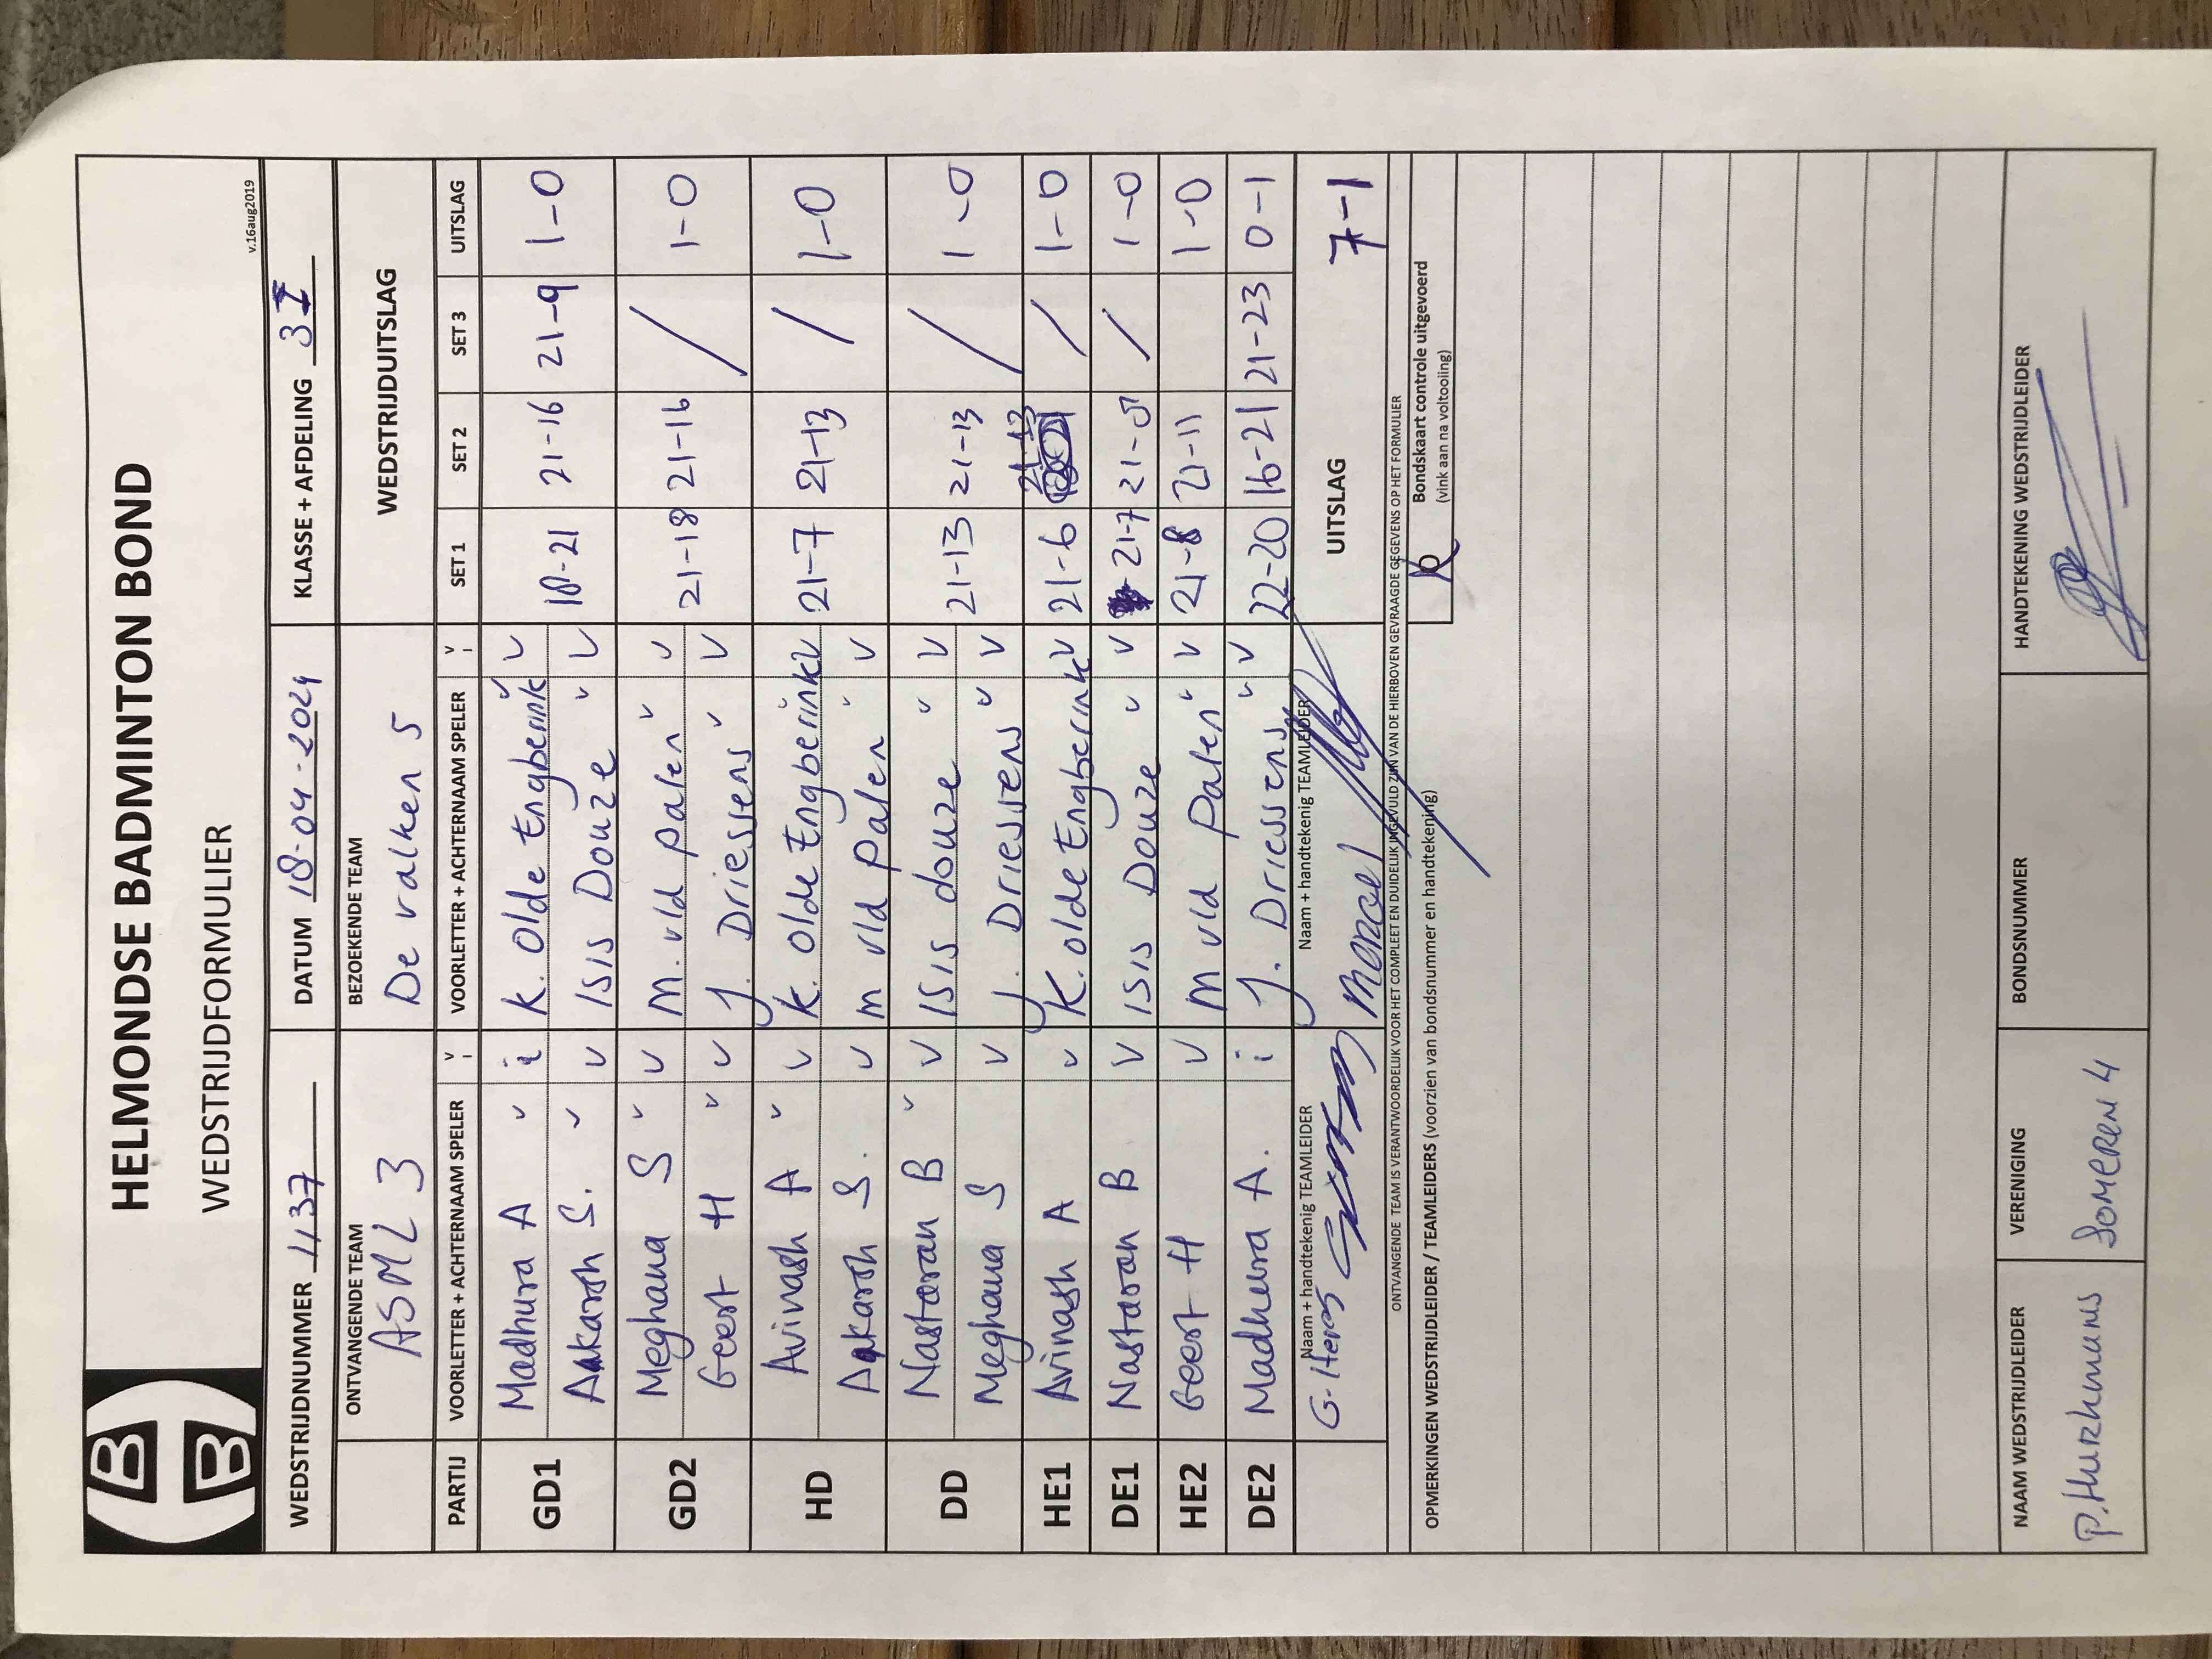 HELMONDSE BADMINTON BOND
WEDSTRIJDFORMULIER
v.16aug2019
WEDSTRIJDNUMMER 1137 DATUM 18-04-2024 KLASSE + AFDELING 3
ONTVANGENDE TEAM BEZOEKENDE TEAM WEDSTRIJDUITSLAG
ASML 3 De valken 5
PARTIJ VOORLETTER + ACHTERNAAM SPELER V I VOORLETTER + ACHTERNAAM SPELER V I SET 1 SET 2 SET 3 UITSLAG
GD1 Madhura A v i K. Olde Engberink v v 18-21 21-16 21-9 1-0
Aakarsh S. v v Isis Douze v v
GD2 Meghana S v v M. vld palen v v 21-18 21-16 / 1-0
Geert H v v J. Driessens v v
HD Avinash A v v K. olde Engberink v v 21-7 21-13 / 1-0
Aakarsh S. v m vld palen v v
DD Nastaran B v v Isis douze v v 21-13 21-13 / 1-0
Meghana S v J. Driessens v v
HE1 Avinash A v K. olde Engberink v 21-6 21-13 / 1-0
DE1 Nastaran B v Isis Douze v v 21-7 21-5 / 1-0
HE2 Geert H v m vld palen v v 21-8 21-11 1-0
DE2 Madhura A. i J. Driessens v v 22-20 16-21 21-23 0-1
Naam + handtekenig TEAMLEIDER Naam + handtekenig TEAMLEIDER UITSLAG 7-1
Marcel
ONTVANGENDE TEAM IS VERANTWOORDELIJK VOOR HET COMPLEET EN DUIDELIJK INGEVULD ZIJN VAN DE HIERBOVEN GEVRAAGDE GEGEVENS OP HET FORMULIER
Bondskaart controle uitgevoerd
(vink aan na voltooiing)
OPMERKINGEN WEDSTRIJDLEIDER / TEAMLEIDERS (voorzien van bondsnummer en handtekening)
NAAM WEDSTRIJDLEIDER VERENIGING BONDSNUMMER HANDTEKENING WEDSTRIJDLEIDER
P. Hurkmans Someren 4